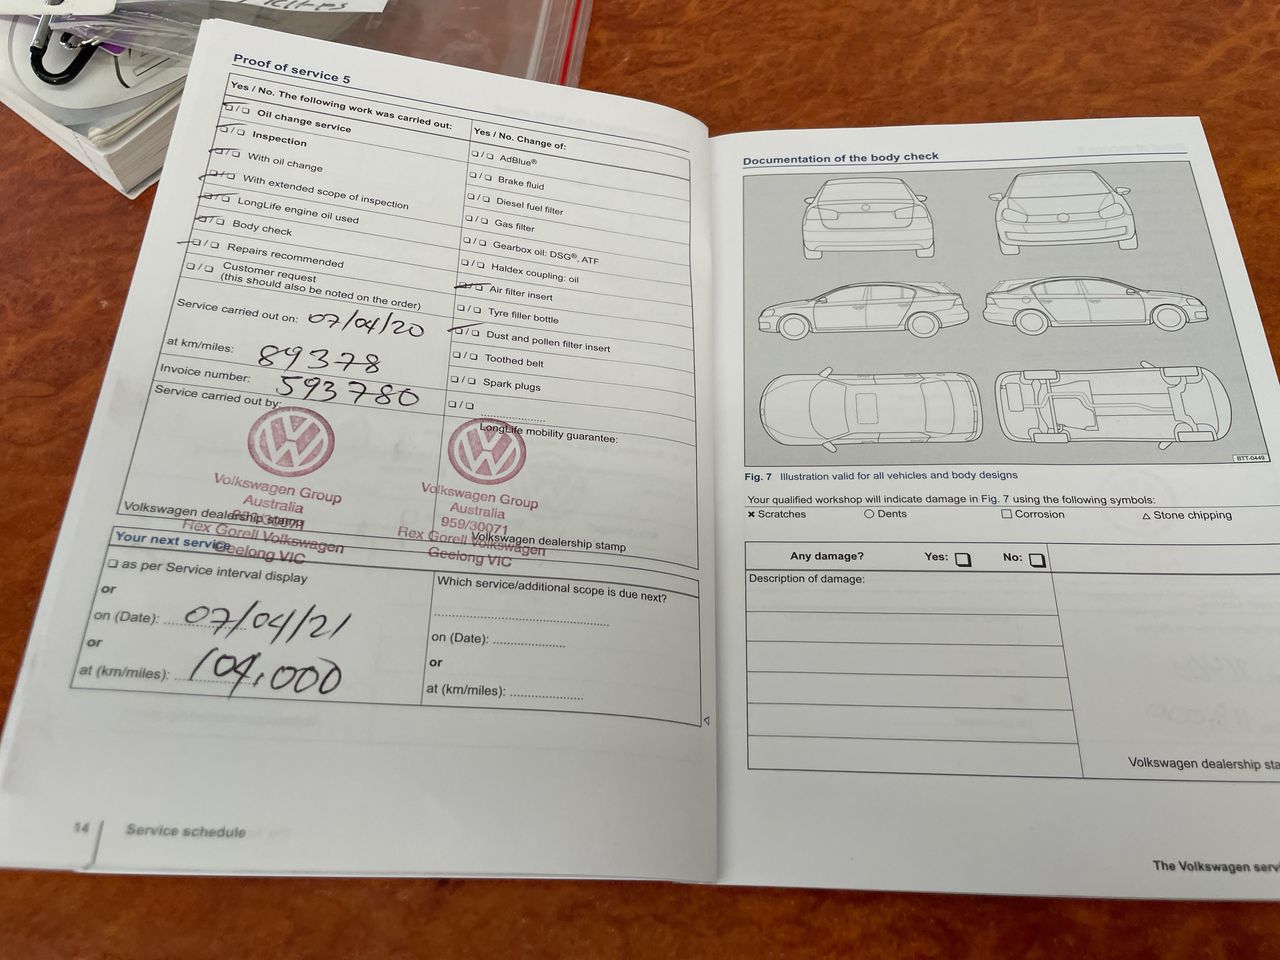 Proof of service 5
Yes / No. The following work was carried out:
❏ / ❏ Oil change service
❏ / ❏ Inspection
❏ / ❏ With oil change
❏ / ❏ With extended scope of inspection
❏ / ❏ LongLife engine oil used
❏ / ❏ Body check
❏ / ❏ Repairs recommended
❏ / ❏ Customer request
(this should also be noted on the order)
Service carried out on: 07/04/20
at km/miles: 89378
Invoice number: 593780
Service carried out by:
Volkswagen Group
Australia
Volkswagen dealership stamp
Rex Gorell Volkswagen
Geelong VIC
Yes / No. Change of:
❏ / ❏ AdBlue®
❏ / ❏ Brake fluid
❏ / ❏ Diesel fuel filter
❏ / ❏ Gas filter
❏ / ❏ Gearbox oil: DSG®, ATF
❏ / ❏ Haldex coupling: oil
❏ / ❏ Air filter insert
❏ / ❏ Tyre filler bottle
❏ / ❏ Dust and pollen filter insert
❏ / ❏ Toothed belt
❏ / ❏ Spark plugs
❏ / ❏ ....................
LongLife mobility guarantee:
Volkswagen Group
Australia
959/30071
Rex Gorell Volkswagen
Geelong VIC
Volkswagen dealership stamp
Your next service
❏ as per Service interval display
or
on (Date): 07/04/21
or
at (km/miles): 104,000
Which service/additional scope is due next?
on (Date): ....................
or
at (km/miles): ....................
14 Service schedule
Documentation of the body check
BTT-0449
Fig. 7 Illustration valid for all vehicles and body designs
Your qualified workshop will indicate damage in Fig. 7 using the following symbols:
× Scratches ○ Dents □ Corrosion △ Stone chipping
Any damage? Yes: ❏ No: ❏
Description of damage:
Volkswagen dealership sta
The Volkswagen serv